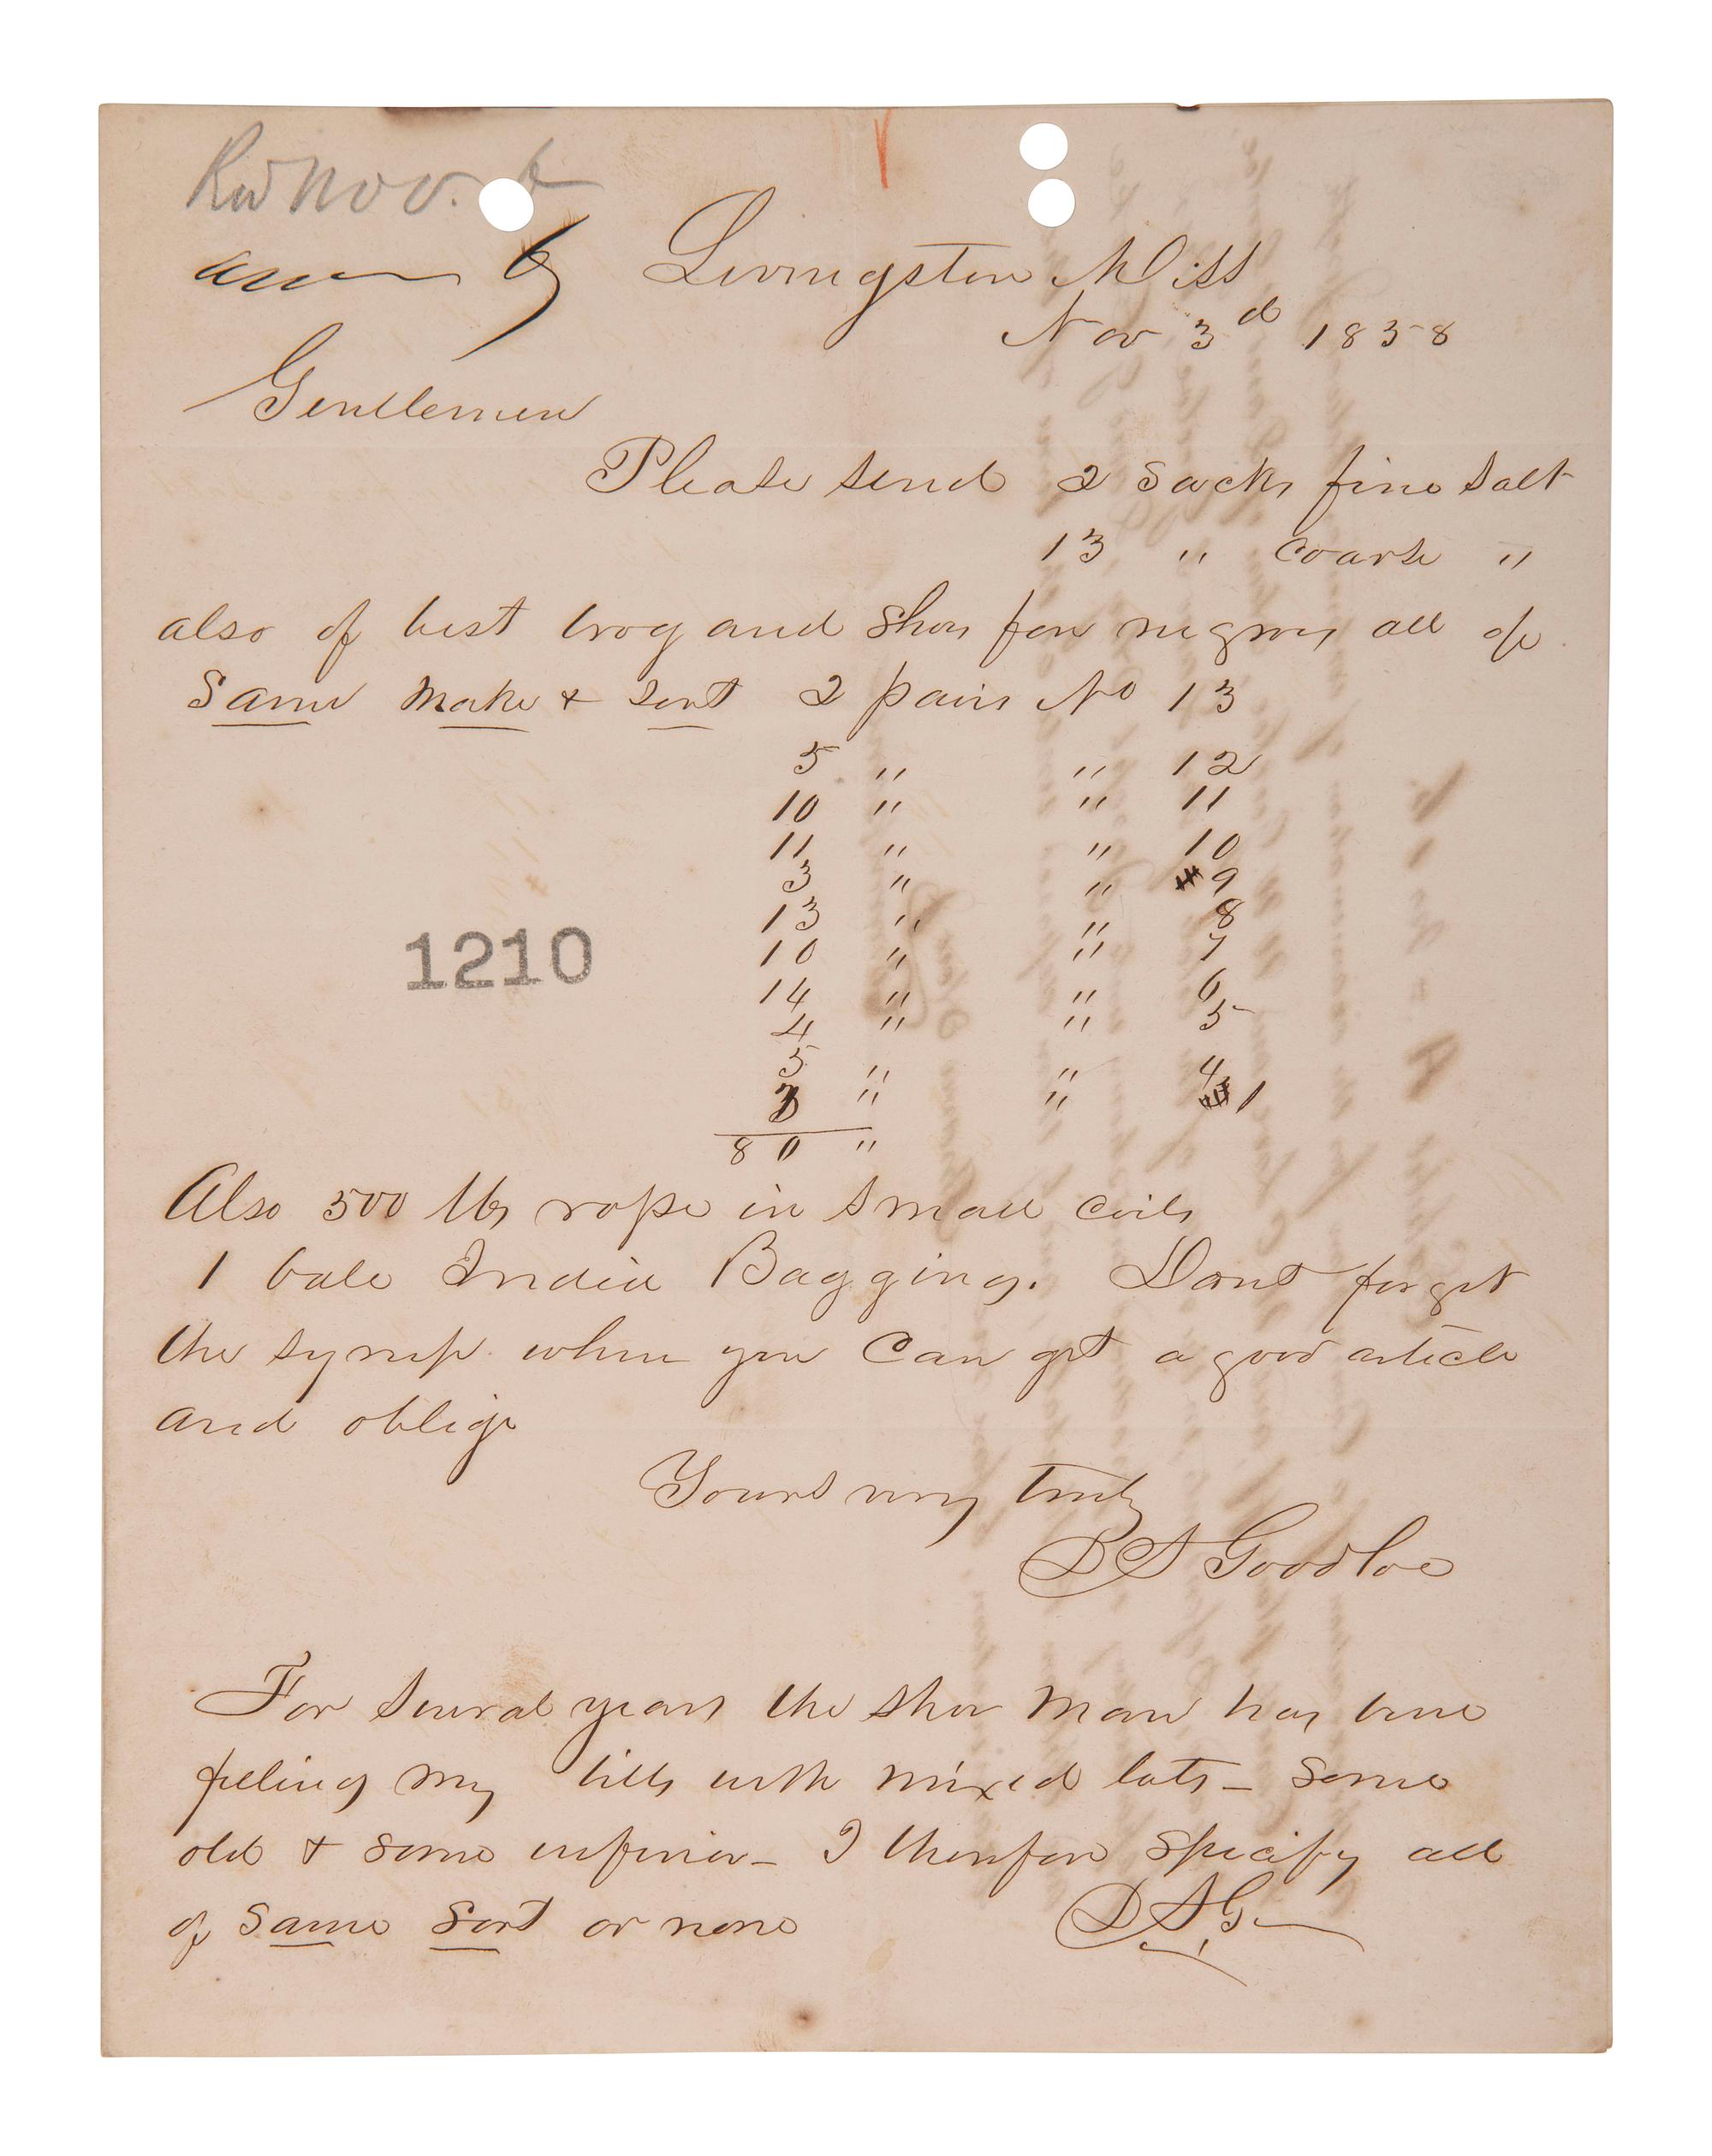 Recd Nov. 6
ansr 6
Livingston Miss
Nov 3d 1858
Gentlemen
Please send 2 Sacks fine salt
13 " Coarse "
also of best brogand Shoes for negroes all of
Same Make & sort 2 pairs No 13
5 " " 12
10 " " 11
11 " " 10
3 " " 9
13 " " 8
10 " " 7
14 " " 6
4 " " 5
5 " " 4
3 " " 1
80 "
1210
Also 500 lbs rope in small coils
1 bale India Bagging. Dont forget
the syrup when you Can get a good article
and oblige
Yours very truly
D S Goodloe
For several years the shoe man has bene
filling my bills with mixed lots - some
old & some inferior - I therefore specify all
of Same Sort or none
D S G